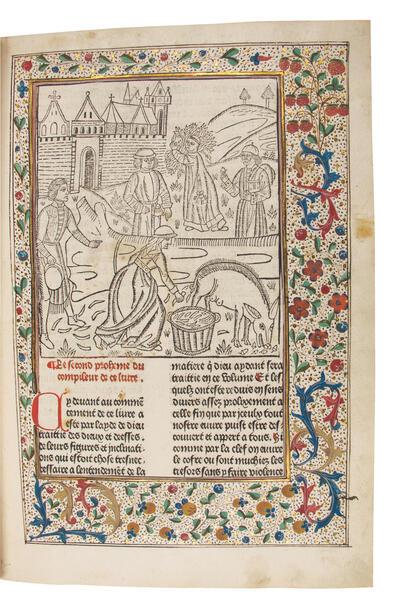 Le second prohesme du
compileur de ce liure.
Cy deuant au commen
cement de ce liure a
este par layde de dieu
traittie des dieux et desses.
de leurs figures et inclinati
ons qui estoit chose tresne
cessaire a lentendement de la
matiere q̃ dieu aydant sera
traittie en ce volume Et les
quelz ont este reduis en sens
diuers assez prolixement a
celle fin que par iceulx tout
nostre œuure puist estre des
couuert et appert a tous. Si
comme par la clef on œuure
le cofre ou sont muchies les
tresors sans y faire violence